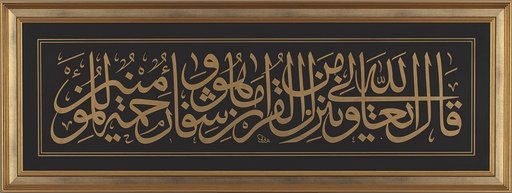 قال الله تعالى وننزل من القرآن ما هو شفاء ورحمة للمؤمنين